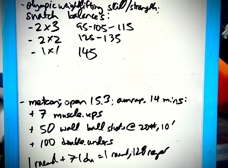 - Olympic weightlifting skill/strength:
snatch balances:
- 2x3 95-105-115
- 2x2 125-135
- 1x1 145
- metcon: open 15.3; amrap 14 mins:
+ 7 muscle ups
+ 50 wall ball shots @ 20#, 10'
+ 100 double unders
1 round + 7 1 du = 1 round, 128 reps